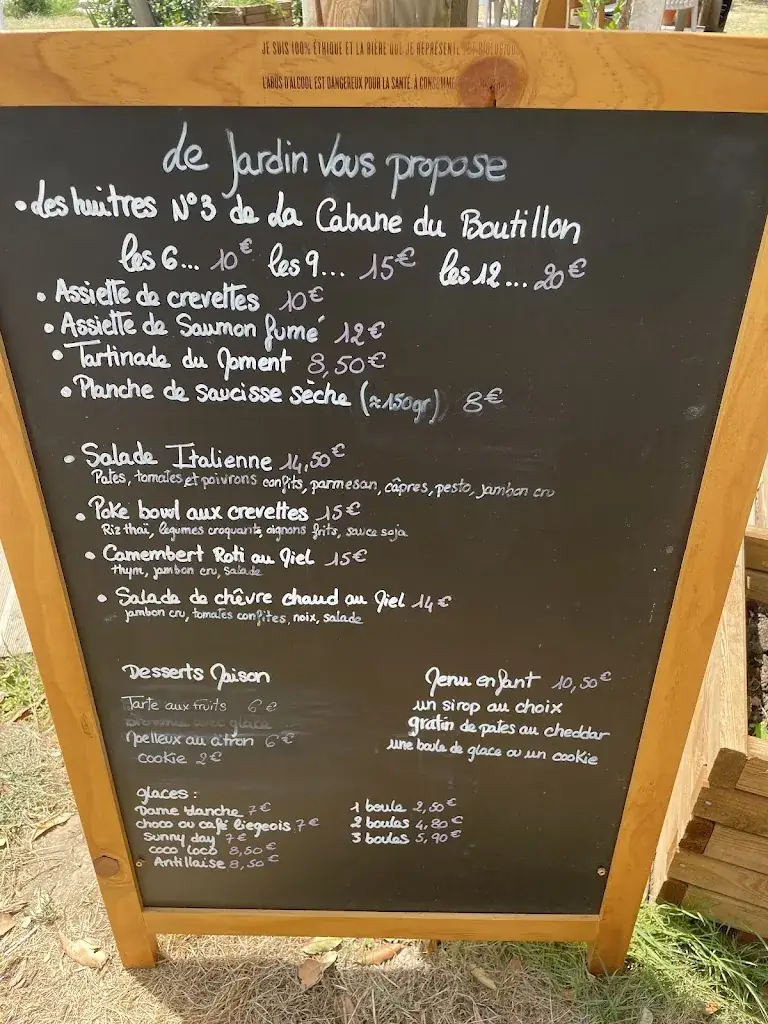 JE SUIS 100% ÉTHIQUE ET LA BIÈRE QUE JE REPRÉSENTE EST BIOLOGIQUE
L'ABUS D'ALCOOL EST DANGEREUX POUR LA SANTÉ. À CONSOMMER
de Jardin vous propose
• des huitres N°3 de La Cabane du Boutillon
les 6... 10€ les 9... 15€ les 12... 20€
• Assiette de crevettes 10€
• Assiette de Saumon fumé 12€
• Tartinade du Moment 8,50€
• Planche de saucisse sèche (≈150gr) 8€
• Salade Italienne 14,50€
Pates, tomates et poivrons confits, parmesan, câpres, pesto, jambon cru
• Poke bowl aux crevettes 15€
Riz thaï, légumes croquants, oignons frits, sauce soja
• Camembert Roti au Miel 15€
thym, jambon cru, salade
• Salade de chêvre chaud au Miel 14€
jambon cru, tomates confites, noix, salade
Desserts Maison
Tarte aux fruits 6€
Brownie avec glace
Moelleux au citron 6€
cookie 2€
Menu enfant 10,50€
un sirop au choix
gratin de pates au cheddar
une boule de glace ou un cookie
glaces :
Dame blanche 7€
choco ou café liegeois 7€
Sunny day 7€
coco loco 8,50€
Antillaise 8,50€
1 boule 2,50€
2 boules 4,80€
3 boules 5,90€